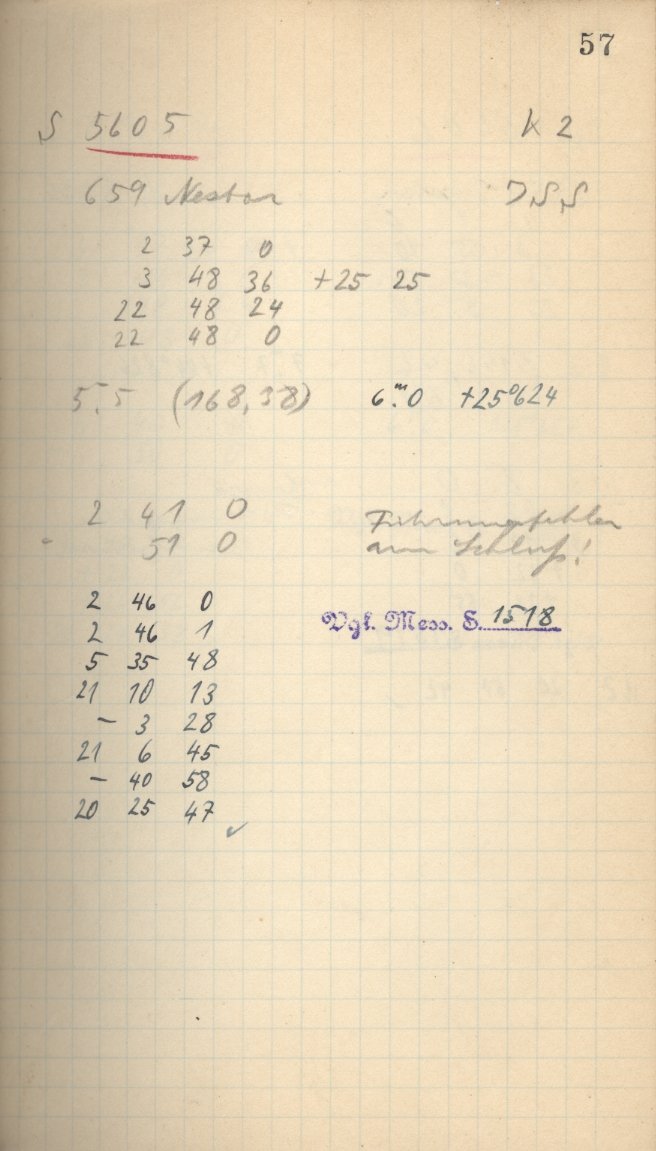 57
S 5605 K 2
659 Nestor
2 37 0
3 48 36 +25 25
22 48 24
22 48 0
5.5 (168,38) 6.ᵐ0 +25°624
2 41 0 Führungsfehler
- 51 0 am Schluß!
2 46 0
2 46 1 Vgl. Mess. S. 1518
5 35 48
21 10 13
- 3 28
21 6 45
- 40 58
20 25 47 ✓